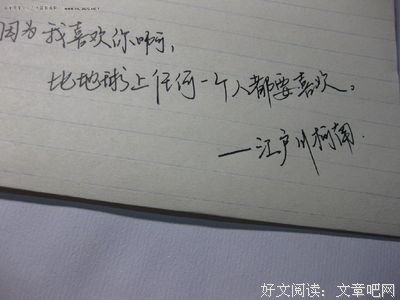 因为我喜欢你啊,
比地球上任何一个人都要喜欢。
—江户川柯南.
好文阅读:文章吧网